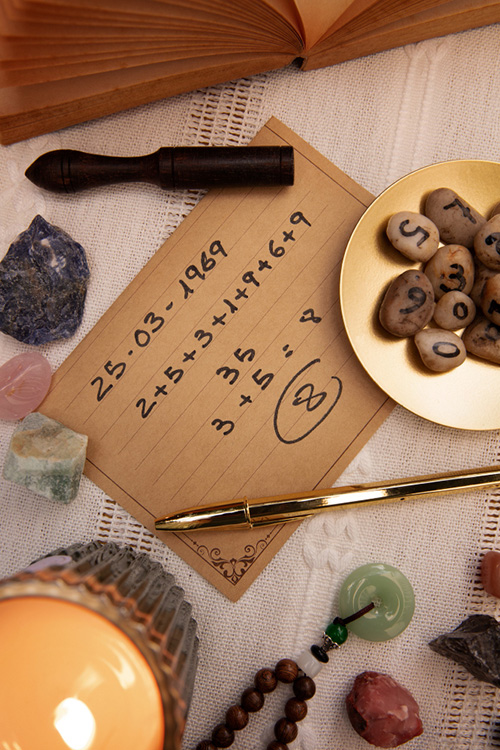 25.03-1969
2+5+3+1+9+6+9
35
3+5= 8
8
5
7
3
9
0
0